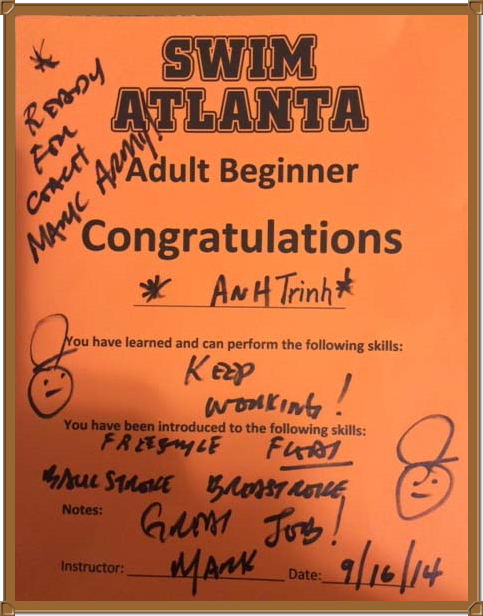 * READY
FOR
COACH
MARK ARMY!
SWIM
ATLANTA
Adult Beginner
Congratulations
* ANH Trinh *
You have learned and can perform the following skills:
KEEP
WORKING!
You have been introduced to the following skills:
FREESTYLE FLOAT
BACKSTROKE BREASTROKE
Notes: GREAT JOB!
Instructor: MARK Date: 9/16/14